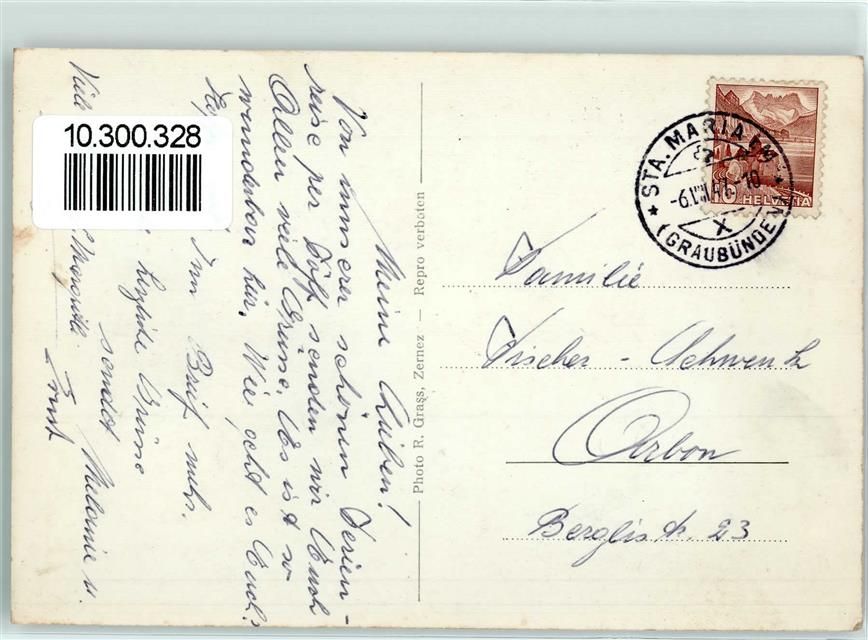 Meine Lieben!
Von unserer schönen Ferien-
reise per Töff senden wir Euch
Allen viele Grüsse. Es ist so
wunderbar hier. Wie geht es Euch?
Im Brief mehr.
herzliche Grüsse
sendet Melanie u.
Ernst
Viele
10.300.328
Photo R. Grass, Zernez — Repro verboten
STA. MARIA i. M.
-6.VIII.47-10
(GRAUBÜNDEN)
10 HELVETIA
Familie
Fischer - Schwenk
Arbon
Berglistr. 23